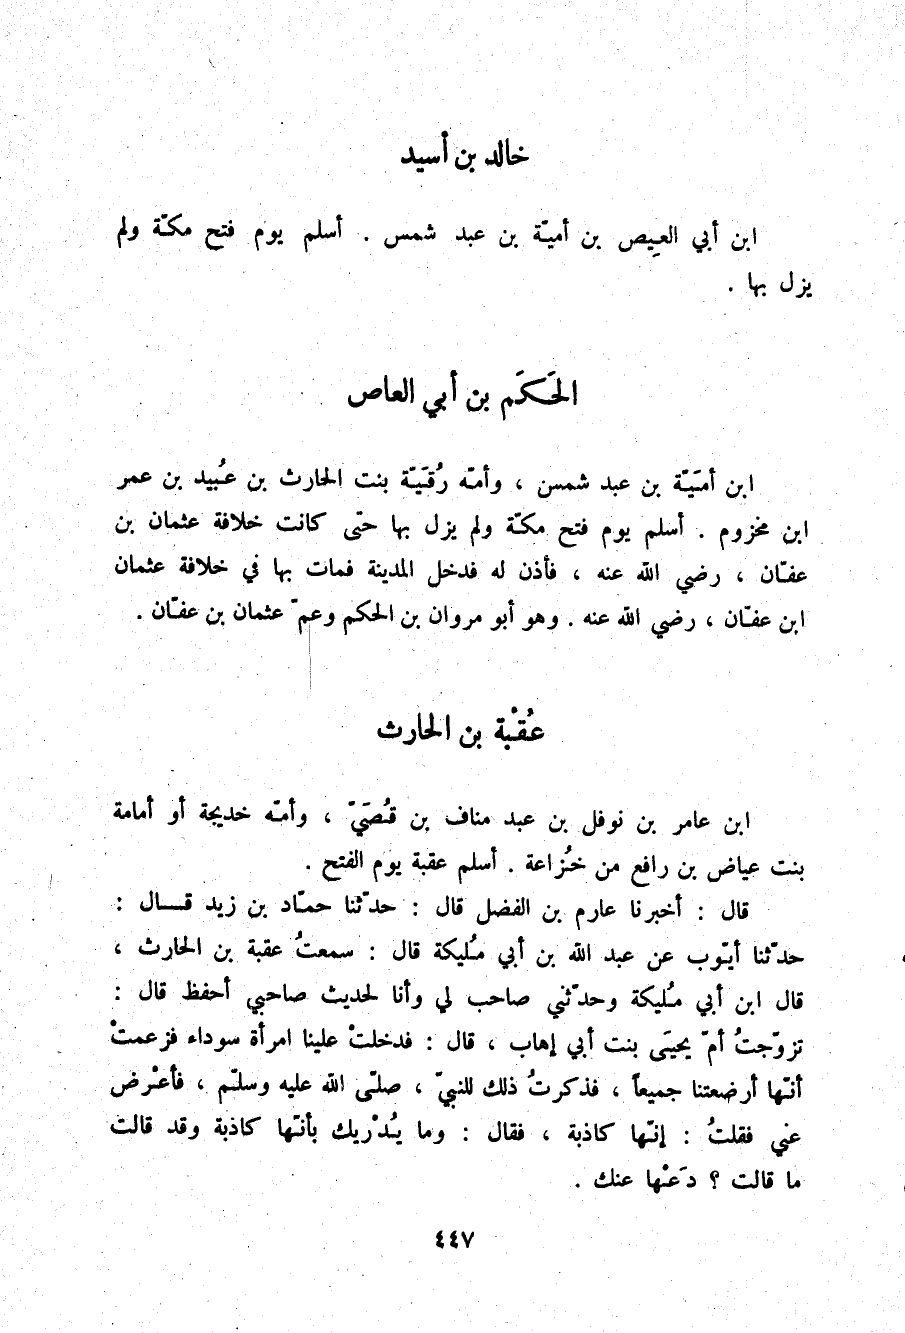 خالد بن أسيد
ابن أبي العِيص بن أميّة بن عبد شمس . أسلم يوم فتح مكّة ولم
يزل بها .
الحَكَم بن أبي العاص
ابن أمَيّة بن عبد شمس ، وأمّه رُقَيّة بنت الحارث بن عُبيد بن عمر
ابن مخزوم . أسلم يوم فتح مكّة ولم يزل بها حتّى كانت خلافة عثمان بن
عفّان ، رضي الله عنه ، فأذن له فدخل المدينة فمات بها في خلافة عثمان
ابن عفّان ، رضي الله عنه . وهو أبو مروان بن الحكم وعمّ عثمان بن عفّان .
عُقْبة بن الحارث
ابن عامر بن نوفل بن عبد مناف بن قُصَيّ ، وأمّه خديجة أو أمامة
بنت عياض بن رافع من خُزاعة . أسلم عقبة يوم الفتح .
قال : أخبرنا عارم بن الفضل قال : حدّثنا حمّاد بن زيد قال :
حدّثنا أيّوب عن عبد الله بن أبي مُليكة قال : سمعتُ عقبة بن الحارث ،
قال ابن أبي مُليكة وحدّثني صاحب لي وأنا لحديث صاحبي أحفظ قال :
تزوّجتُ أمّ يحيَى بنت أبي إهاب ، قال : فدخلتْ علينا امرأة سوداء فزعمتْ
أنّها أرضعتنا جميعاً ، فذكرتُ ذلك للنبيّ ، صلّى الله عليه وسلّم ، فأعْرض
عني فقلتُ : إنّها كاذبة ، فقال : وما يُدْريك بأنّها كاذبة وقد قالت
ما قالت ؟ دَعْها عنك .
٤٤٧